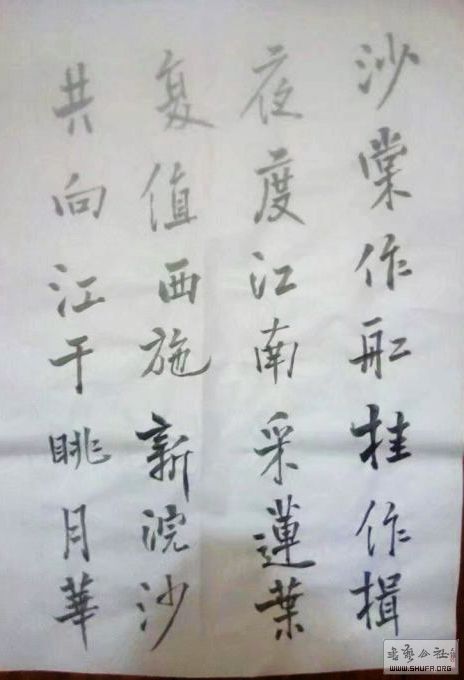 沙棠作舡挂作揖
夜度江南采蓮葉
复值西施新浣沙
共向江干眺月華
书艺公社
WWW.SHUFA.ORG